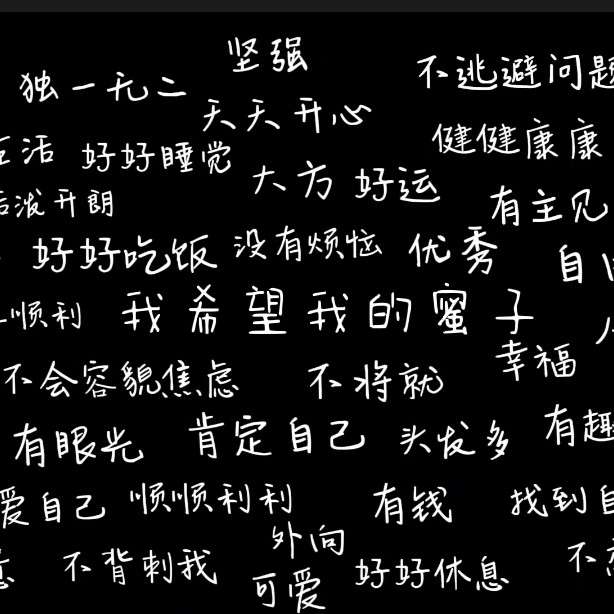 坚强
独一无二
不逃避问题
天天开心
活
好好睡觉
健健康康
大方
好运
泼开朗
有主见
好好吃饭
没有烦恼
优秀
自
顺利
我希望我的蜜子
幸福
不会容貌焦虑
不将就
有眼光
肯定自己
头发多
有趣
爱自己
顺顺利利
有钱
找到自
外向
不背刺我
可爱
好好休息
不